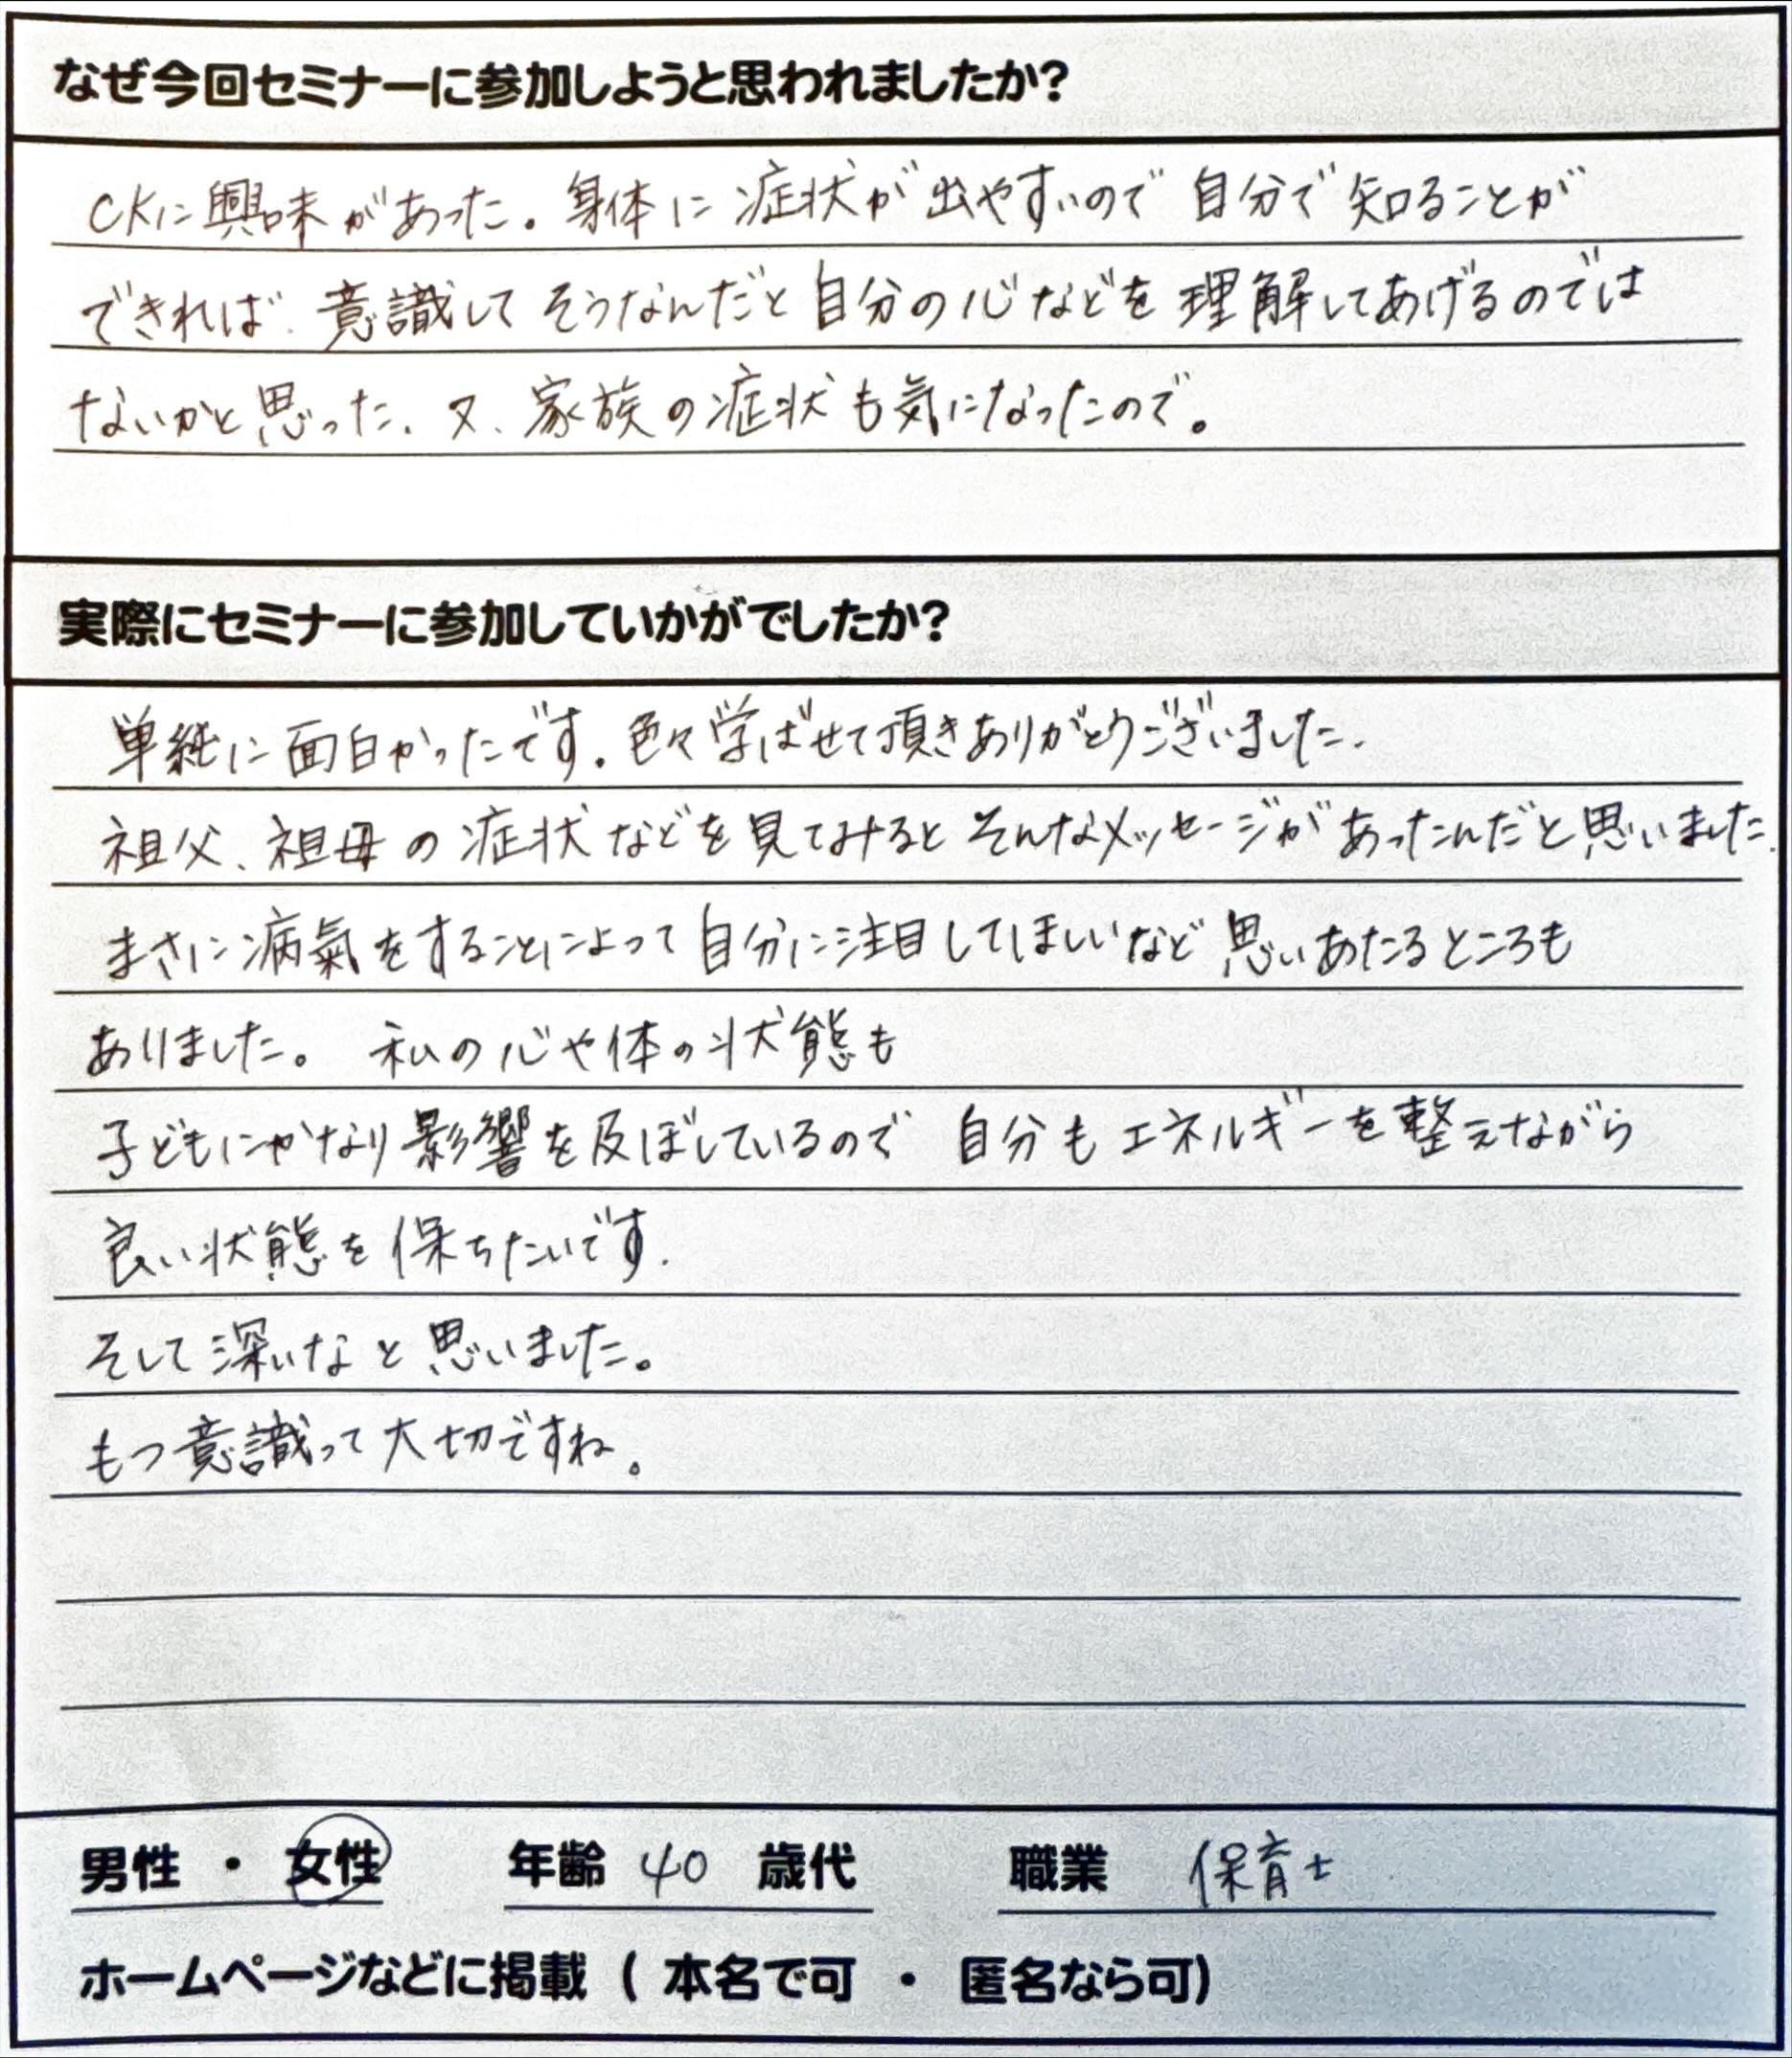 なぜ今回セミナーに参加しようと思われましたか?
CKに興味があった。身体に症状が出やすいので自分で知ることが
できれば、意識してそうなんだと自分の心などを理解してあげるのでは
ないかと思った、又、家族の症状も気になったので。
実際にセミナーに参加していかがでしたか?
単純に面白かったです。色々学ばせて頂きありがとうございました。
祖父、祖母の症状などを見てみるとそんなメッセージがあったんだと思いました。
まさに病氣をすることによって自分に注目してほしいなど思いあたるところも
ありました。私の心や体の状態も
子どもにかなり影響を及ぼしているので自分もエネルギーを整えながら
良い状態を保ちたいです.
そして深いなと思いました。
もつ意識って大切ですね。
男性 ・ 女性 年齢 40 歳代 職業 保育士
ホームページなどに掲載 ( 本名で可 ・ 匿名なら可)